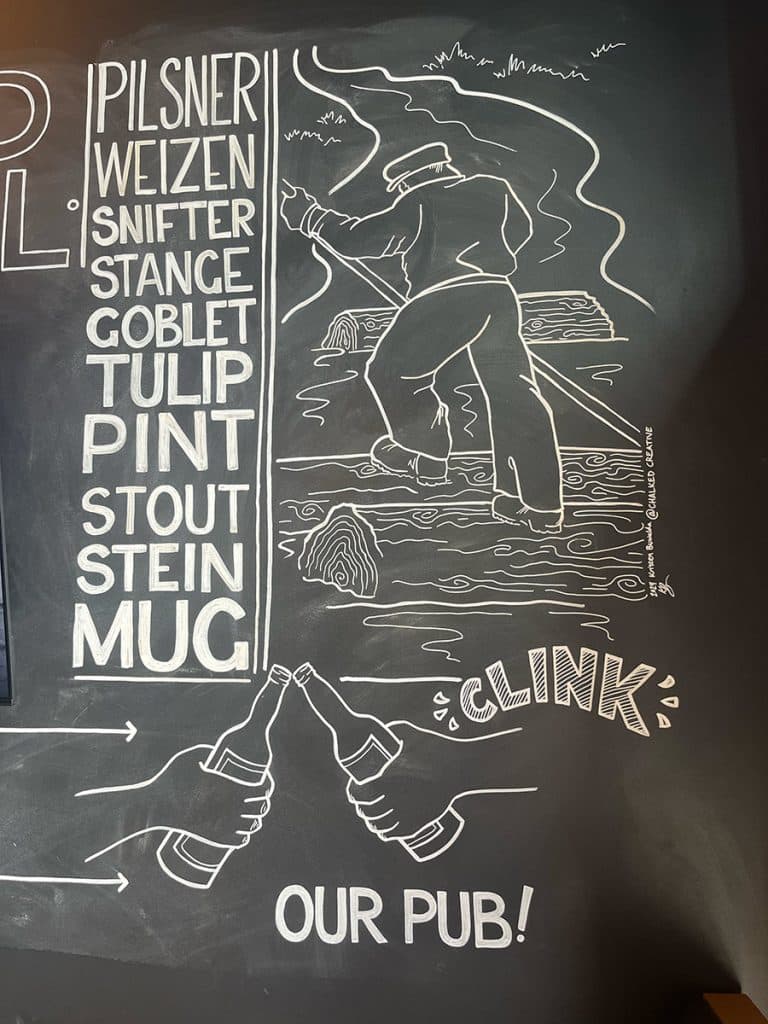 L.
PILSNER
WEIZEN
SNIFTER
STANGE
GOBLET
TULIP
PINT
STOUT
STEIN
MUG
@CHALKED CREATIVE
CLINK
OUR PUB!